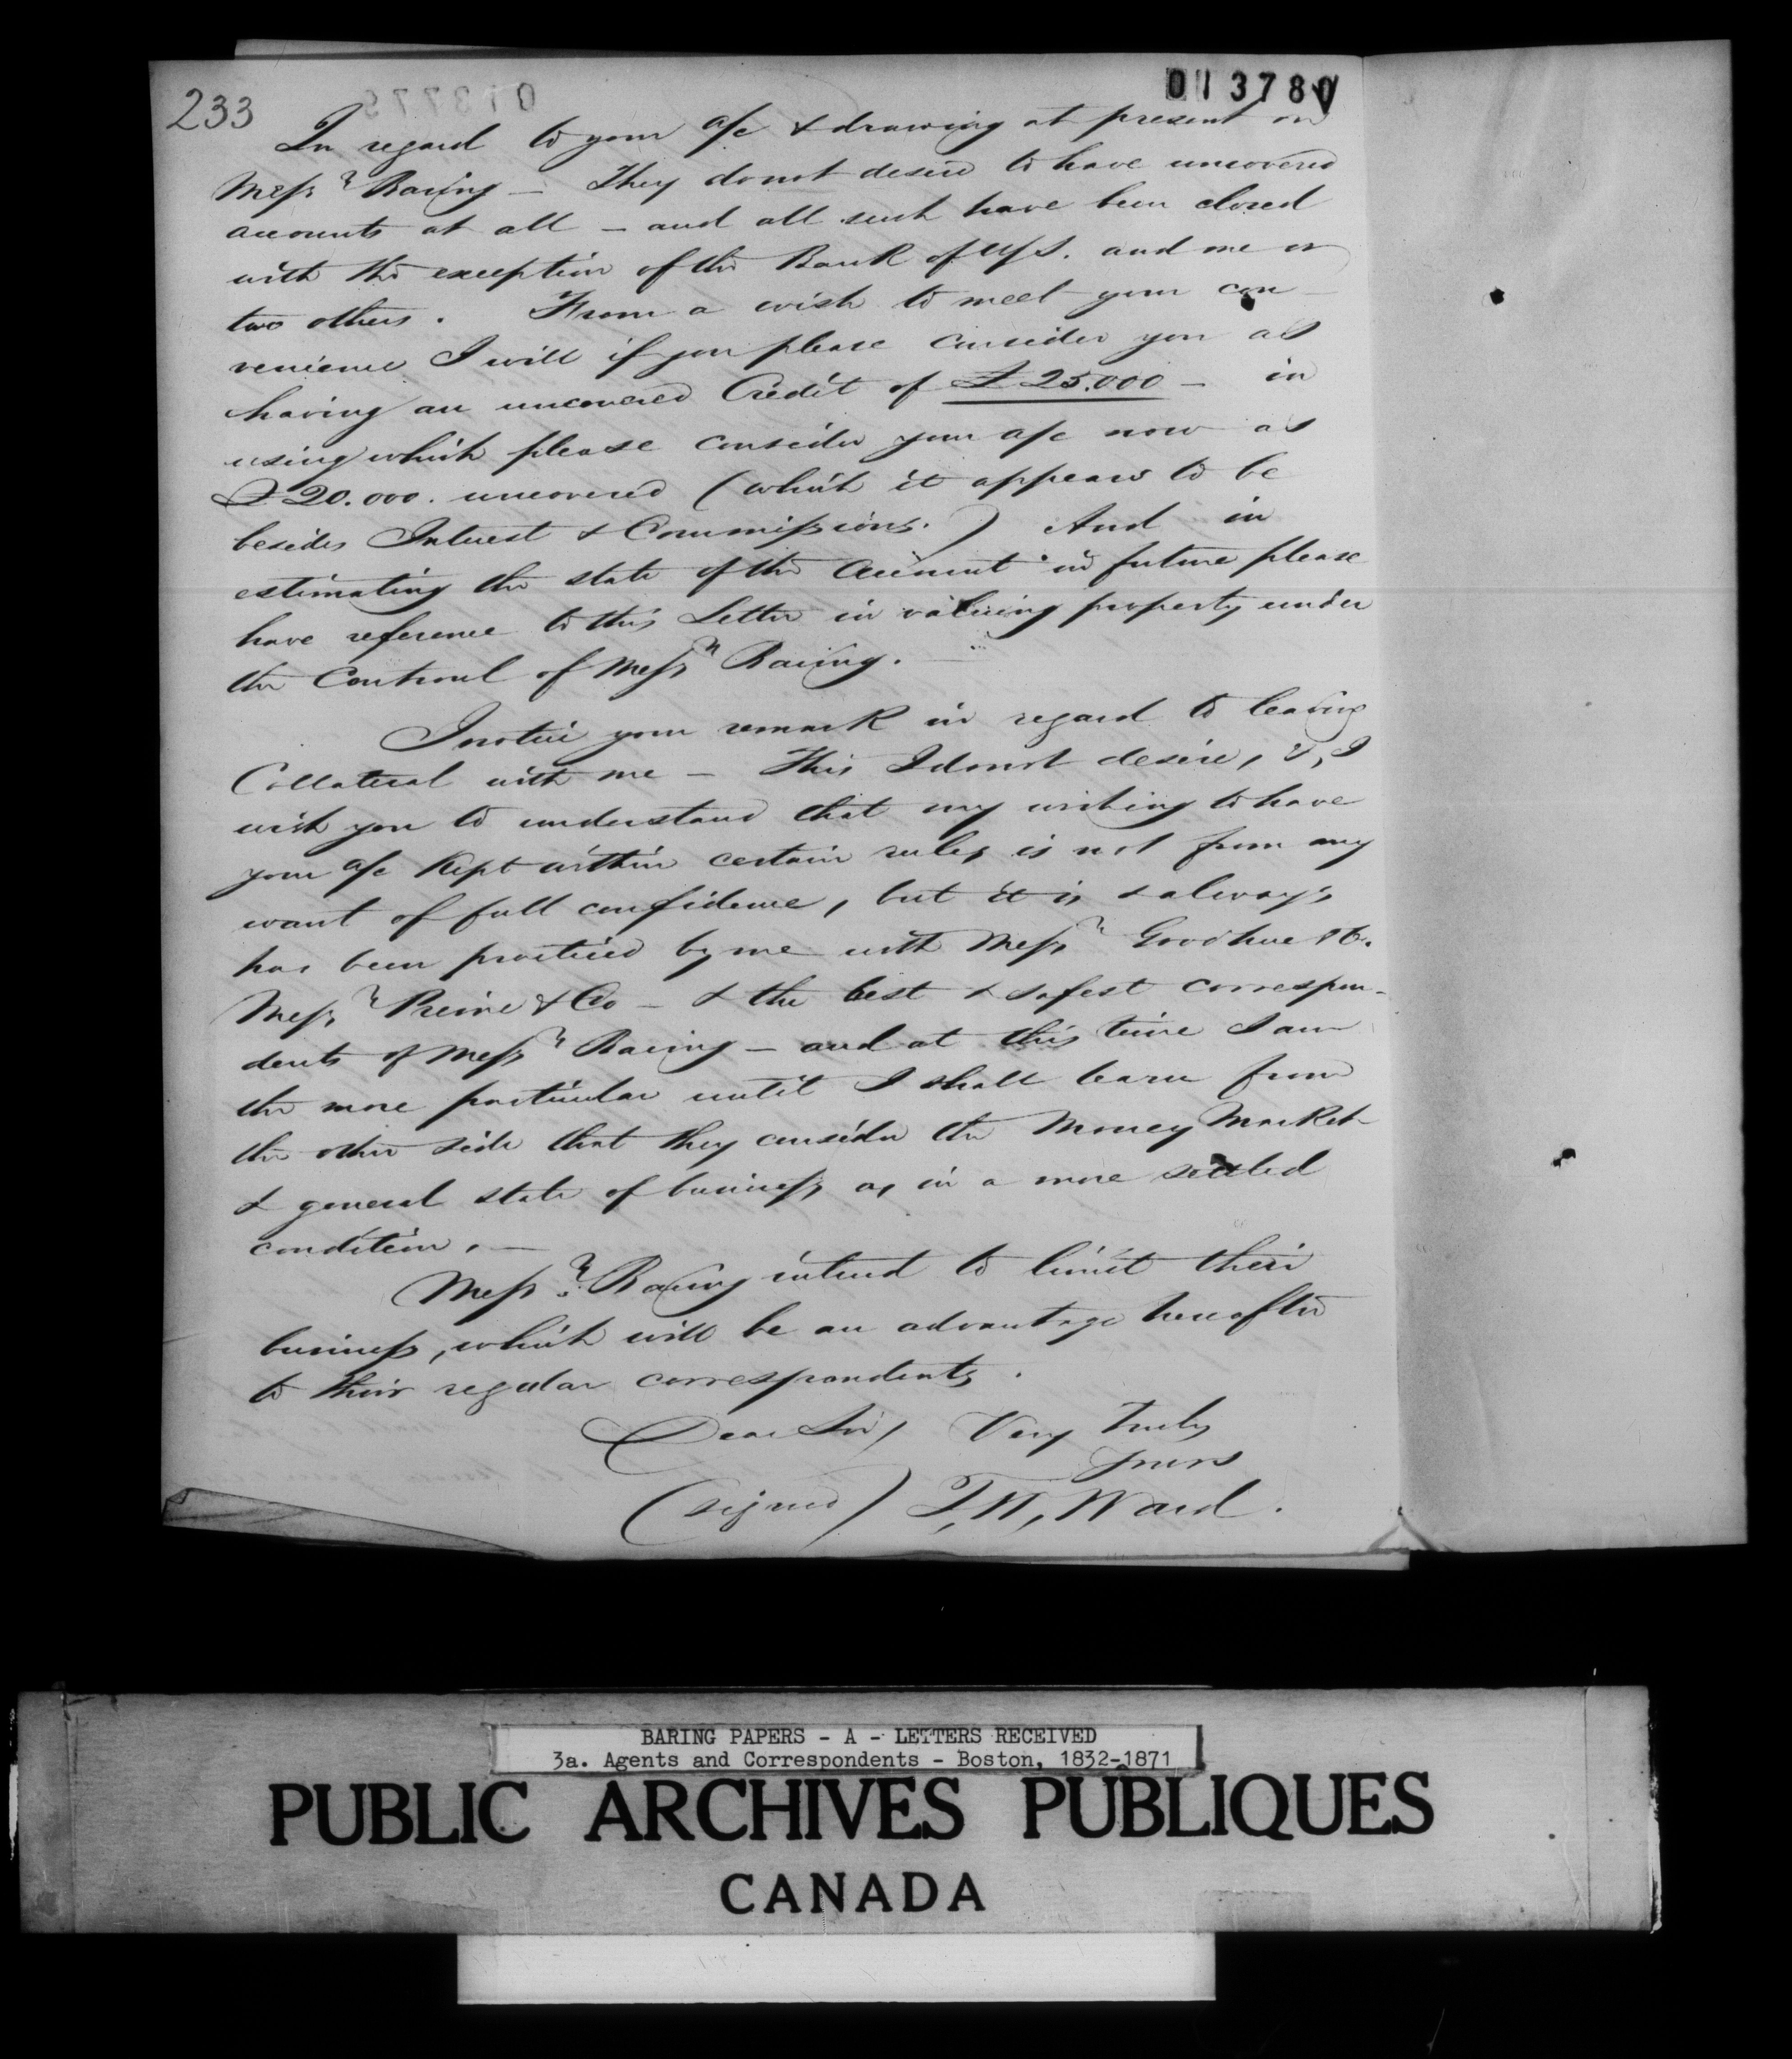 233
013780
In regard to your a/c & drawing at present on
Messrs Baring — They do not desire to have uncovered
accounts at all — and all such have been closed
with the exception of the Bank of U/S. and one or
two others. From a wish to meet your con-
venience I will if you please consider you as
having an uncovered Credit of £25.000 — in
using which please consider your a/c now as
£20.000. uncovered (which it appears to be
besides Interest & Commissions.) And in
estimating the state of the Account in future please
have reference to this Letter in valuing property under
the Controul of Messrs Baring. —
I notice your remark in regard to leaving
Collateral with me — This I do not desire, & I
wish you to understand that my wishing to have
your a/c Kept within certain rules is not from any
want of full confidence, but it is & always
has been practiced by me with Messrs Goodhue & Co.
Messrs Prime & Co — & the best & safest correspon-
dents of Messrs Baring — and at this time I am
the more particular until I shall learn from
the other side that they consider the Money Market
& general state of business as in a more settled
condition. —
Messrs Baring intend to limit their
business, which will be an advantage hereafter
to their regular correspondents.
Dear Sir, Very truly
yours
(signed) T. W. Ward.
BARING PAPERS - A - LETTERS RECEIVED
3a. Agents and Correspondents - Boston, 1832-1871
PUBLIC ARCHIVES PUBLIQUES
CANADA